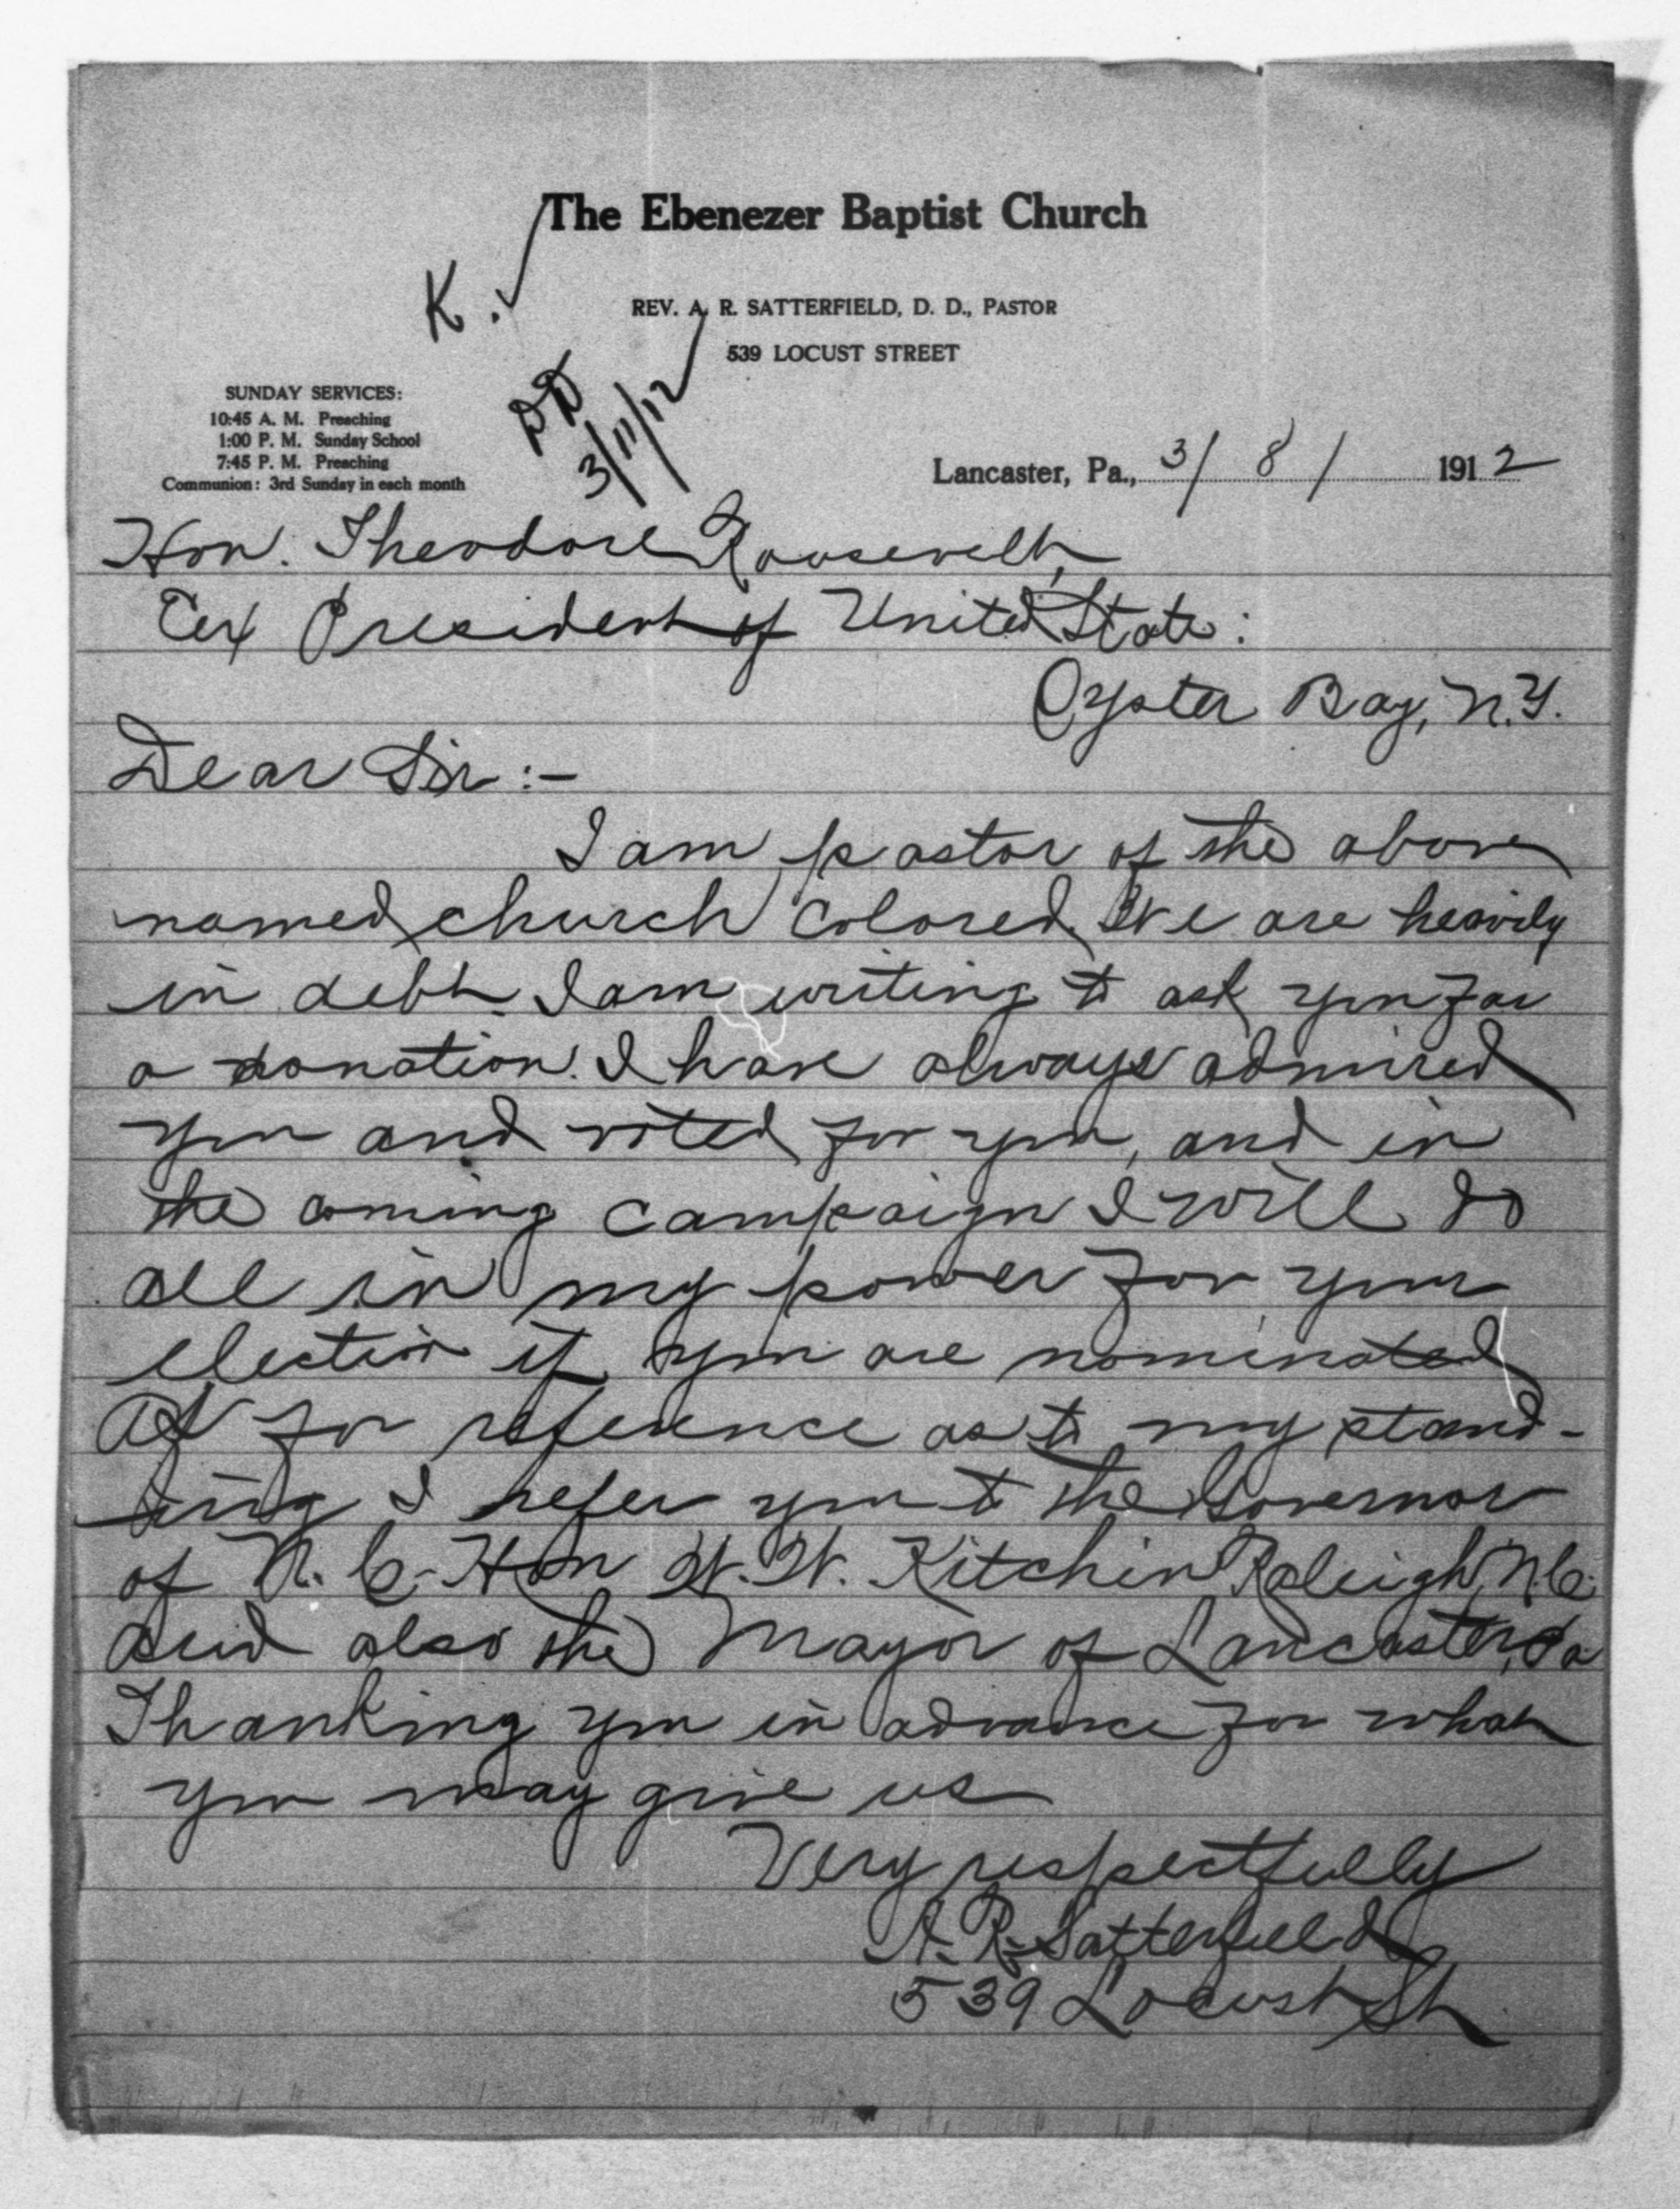 The Ebenezer Baptist Church
K.
REV. A. R. SATTERFIELD, D. D., PASTOR
539 LOCUST STREET
SUNDAY SERVICES:
10:45 A. M. Preaching
1:00 P. M. Sunday School
7:45 P. M. Preaching
Communion: 3rd Sunday in each month
3/11/12
Lancaster, Pa., 3/ 8 / 1912
Hon. Theodore Roosevelt,
Ex President of United State:
Oyster Bay, N.Y.
Dear Sir:-
I am pastor of the above
named church colored. We are heavily
in debt. I am writing to ask you for
a donation. I have always admired
you and voted for you, and in
the coming campaign I will do
all in my power for your
election if you are nominated
As for reference as to my stand-
ing I refer you to the Governor
of N. C. Hon W. W. Kitchin Raleigh, N.C.
and also the Mayor of Lancaster, Pa
Thanking you in advance for what
you may give us
Very respectfully
A. R. Satterfield
539 Locust St